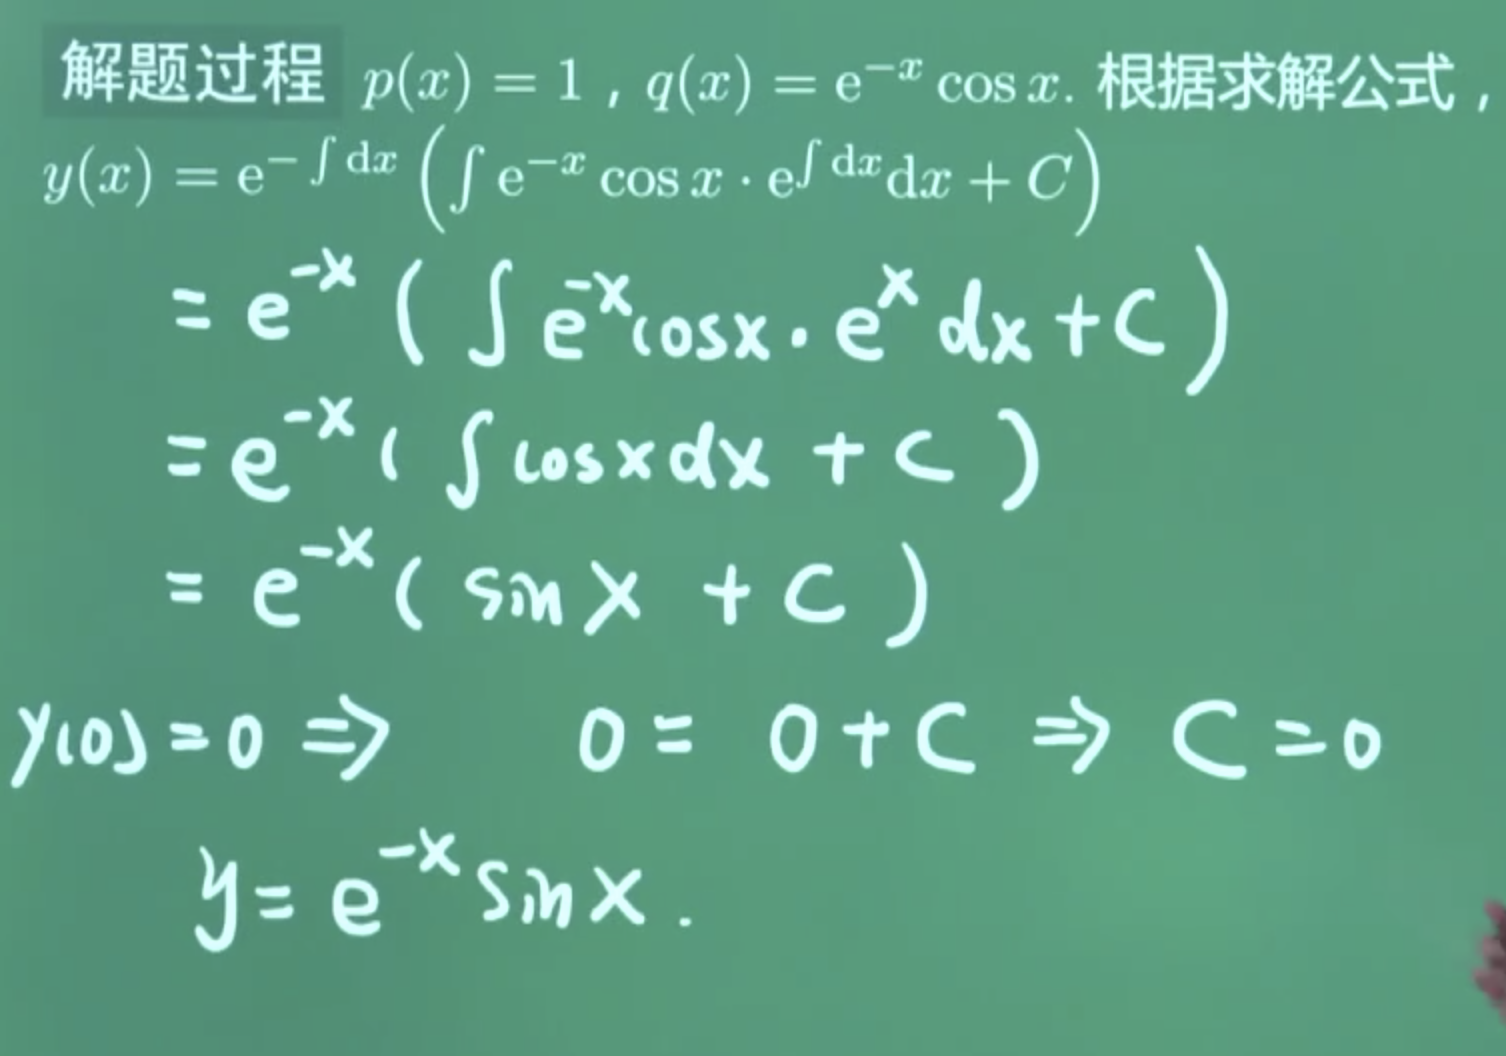 解题过程 p(x) = 1 , q(x) = e^{-x} cos x. 根据求解公式 ,
y(x) = e^{-∫ dx} (∫ e^{-x} cos x · e^{∫ dx} dx + C)
= e^{-x} ( ∫ e^{-x} cosx · e^{x} dx + C )
= e^{-x} ( ∫ cosx dx + C )
= e^{-x} ( sin x + C )
y(0) = 0 ⇒ 0 = 0 + C ⇒ C = 0
y = e^{-x} sin x .